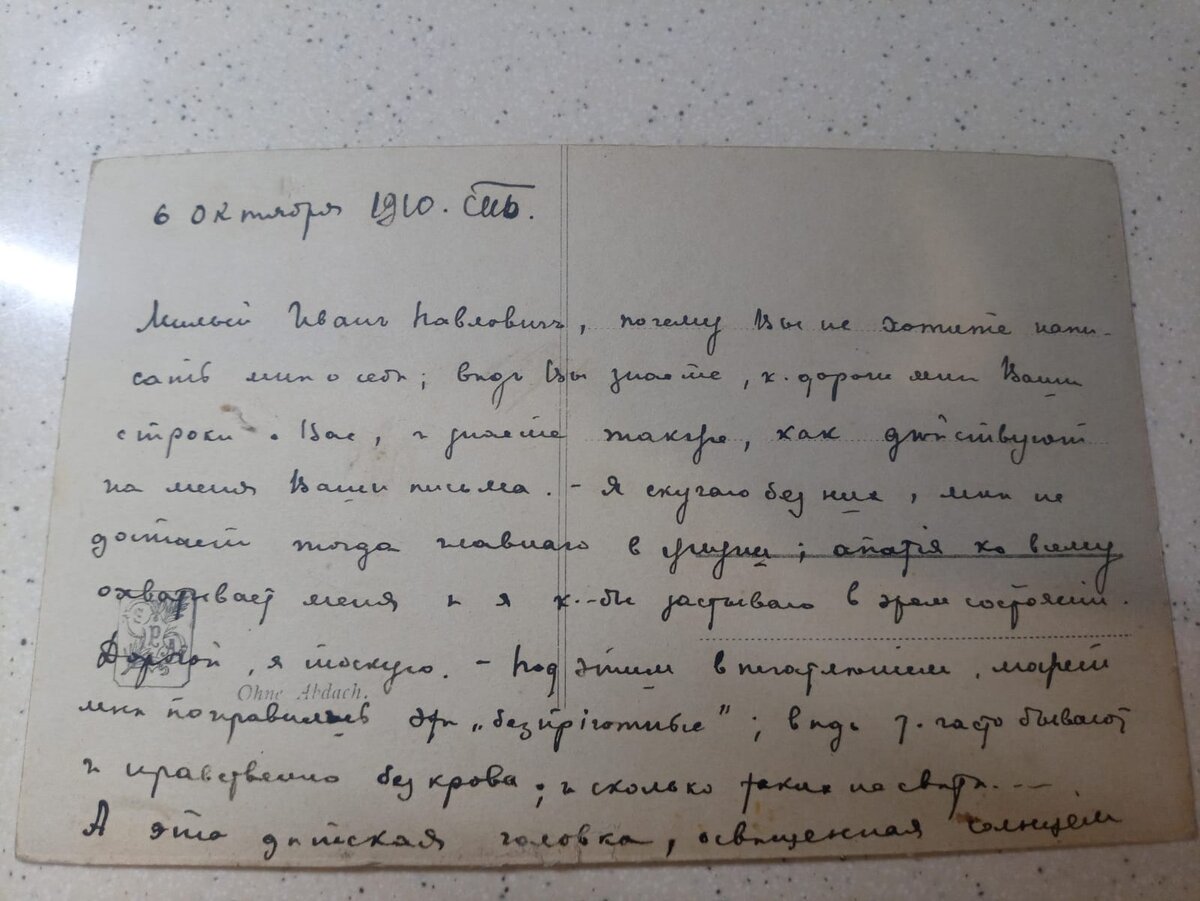 6 Октября 1910. СПБ.
Милый Иванъ Павловичъ, почему Вы не хотите напи-
сать мнѣ о себѣ; вѣдь Вы знаете, к. дороги мнѣ Ваши
строки о Вас, и знаете также, как дѣйствуют
на меня Ваши письма. – Я скучаю без них, мнѣ не
достает тогда главнаго в жизни; апатія ко всему
охватывает меня и я к.-бы застываю в этом состояніи.
Дорогой, я тоскую. – Под этим впечатлѣніем,
мнѣ понравились эти „безпріютные"; вѣдь т. часто бывают
и нравственно без крова; и сколько таких на свѣтѣ...
А эта дѣтская головка, освѣщенная солнцем
Ohne Abdach.